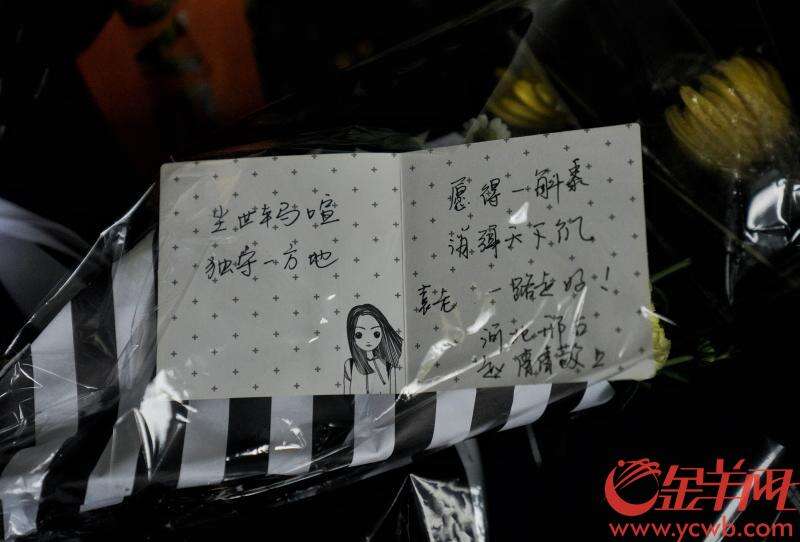 尘世车马喧
独守一方地
愿得一斛黍
消弭天下饥
袁老 一路走好！
河北邢台
敬上
金羊网
www.ycwb.com